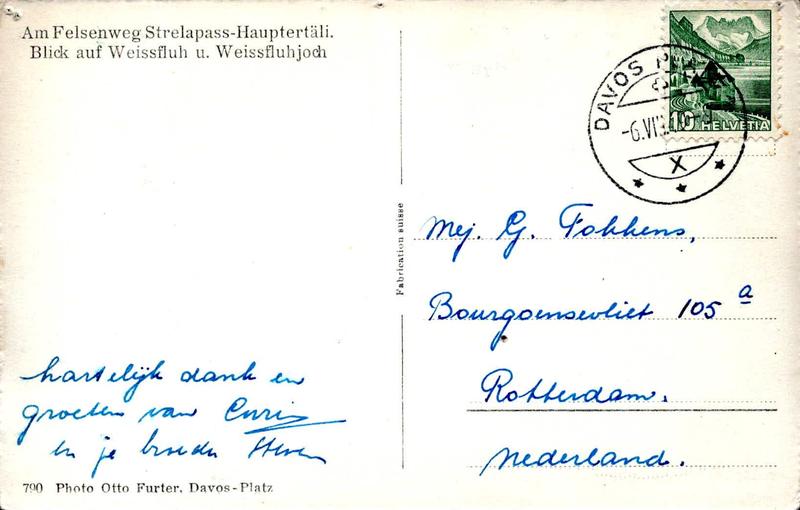 Am Felsenweg Strelapass-Hauptertäli.
Blick auf Weissfluh u. Weissfluhjoch
DAVOS
-6.VI
X
10 HELVETIA
Fabrication suisse
Mej. G. Fokkens,
Bourgoensevliet 105 a
Rotterdam.
Nederland.
hartelijk dank en
groeten van
en je broeder Steven
790 Photo Otto Furter, Davos-Platz